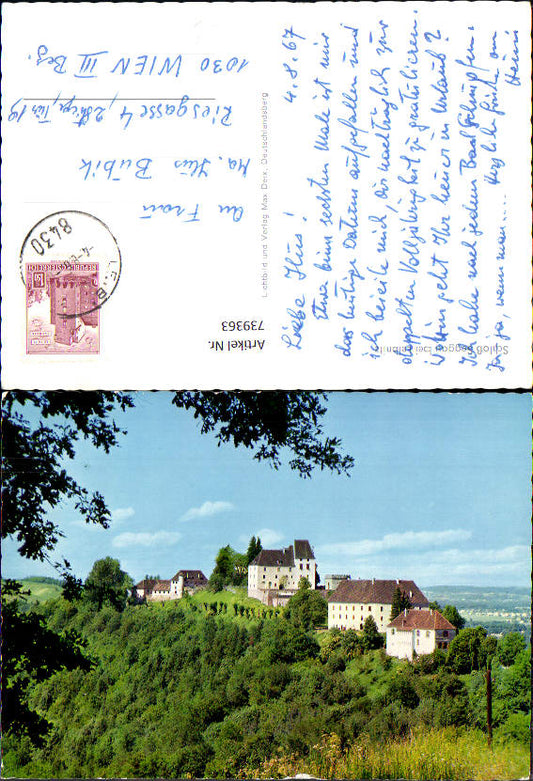 4.8.67
Liebe Hias!
Etwa beim sechsten Male ist mir
das heutige Datum aufgefallen und
ich beeile mich, dir nachträglich zur
doppelten Volljährigkeit zu gratulieren.
Wohin geht Ihr heuer in Urlaub?
Ich habe nach jedem Bad Schnupfen.
Ja ja, wenn man .... Herzliche Grüße von
an Frau
Bubik
Riesgasse 4, 2. Stiege, Tür 19
1030 WIEN III. Bez.
Lichtbild und Verlag Max Derx, Deutschlandsberg
Schloß Seggau bei Leibnitz
Artikel Nr.
739363
8430
REPUBLIK ÖSTERREICH